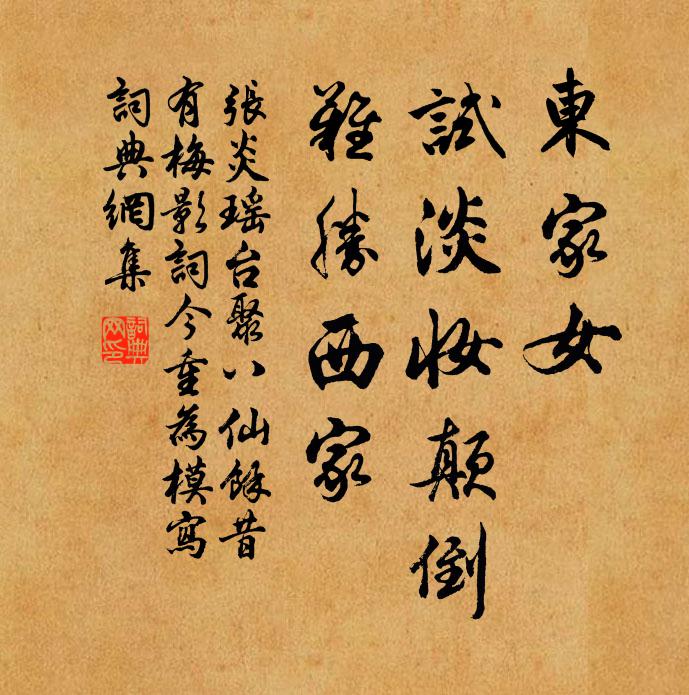 東家女
試淡妝顛倒
難勝西家
張炎瑶台聚八仙餘昔
有梅影詞今重為模寫
詞典網集
詞典
网印